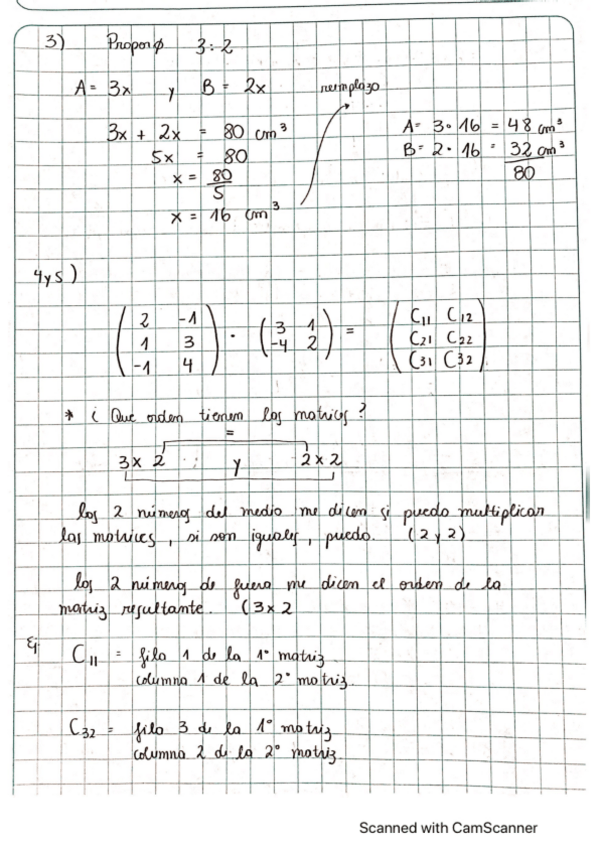 3) Proporø 3:2
A = 3x y B = 2x reemplazo
3x + 2x = 80 cm³ A = 3 · 16 = 48 cm³
5x = 80 B = 2 · 16 = 32 cm³
x = 80/5 80
x = 16 cm³
4 y 5)
( 2 -1 ) ( 3 1 ) = ( C₁₁ C₁₂ )
( 1 3 ) · ( -4 2 ) ( C₂₁ C₂₂ )
( -1 4 ) ( C₃₁ C₃₂ )
* ¿ Que orden tienen las matrices ?
=
3 x 2 y 2 x 2
los 2 números del medio me dicen si puedo multiplicar
las matrices, si son iguales, puedo. (2 y 2)
los 2 números de fuera me dicen el orden de la
matriz resultante. (3 x 2
Ej: C₁₁ = fila 1 de la 1º matriz
columna 1 de la 2º matriz.
C₃₂ = fila 3 de la 1º matriz
columna 2 de la 2º matriz.
Scanned with CamScanner